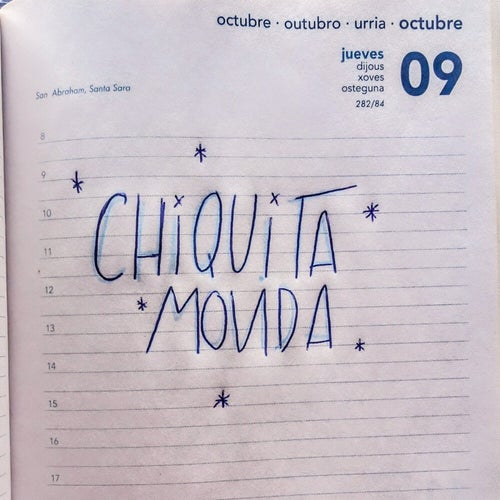 octubre · outubro · urria · octubre
jueves 09
dijous
xoves
osteguna
282/84
San Abraham, Santa Sara
8
9
10
11
12
13
14
15
16
17
CHiQUiTA
MOVIDA